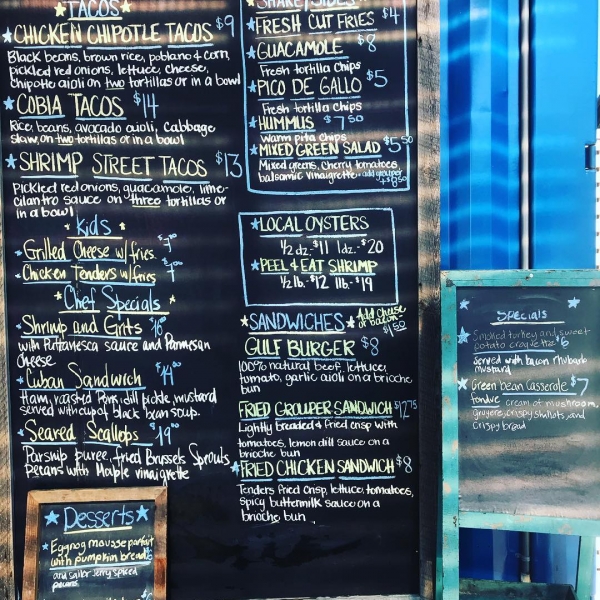 *TACOS*
*CHICKEN CHIPOTLE TACOS $9
Black beans, brown rice, poblano & corn,
pickled red onions, lettuce, cheese,
chipotle aioli on two tortillas or in a bowl
*COBIA TACOS $14
Rice, beans, avocado aioli, Cabbage
slaw, on two tortillas or in a bowl
*SHRIMP STREET TACOS $13
Pickled red onions, guacamole, lime-
cilantro sauce on three tortillas or
in a bowl
*Kids*
*Grilled Cheese w/fries $7
*Chicken Tenders w/fries $7
*Chef Specials*
*Shrimp and Grits $16
with Puttanesca sauce and Parmesan
Cheese
*Cuban Sandwich $14
Ham, roasted Pork, dill pickle, mustard
served w/cup of black bean soup.
*Seared Scallops $19
Parsnip puree, fried Brussels Sprouts,
pecans with Maple vinaigrette
*Desserts*
*Eggnog mousse parfait
with pumpkin bread
and sailor jerry spiced
pecans
SHARE/SIDES
*FRESH CUT FRIES $4
*GUACAMOLE $8
Fresh tortilla chips
*PICO DE GALLO $5
Fresh tortilla chips
*HUMMUS $7.50
warm pita chips
*MIXED GREEN SALAD $5.50
Mixed greens, cherry tomatoes,
balsamic vinaigrette - add grouper
*LOCAL OYSTERS
1/2 dz. $11 1dz. $20
*PEEL & EAT SHRIMP
1/2 lb. $12 1lb. $19
*SANDWICHES* Add cheese
or bacon $1.50
GULF BURGER $8
100% natural beef, lettuce,
tomato, garlic aioli on a brioche
bun
FRIED GROUPER SANDWICH $12.75
Lightly breaded & fried crisp with
tomatoes, lemon dill sauce on a
brioche bun
*FRIED CHICKEN SANDWICH $8
Tenders fried crisp, lettuce, tomatoes,
spicy buttermilk sauce on a
brioche bun
*SPECIALS*
*Smoked turkey and sweet
potato croquette $6
served with bacon rhubarb
mustard
*Green bean Casserole $7
fondue cream of mushroom,
gruyere, crispy shallots, and
crispy bread